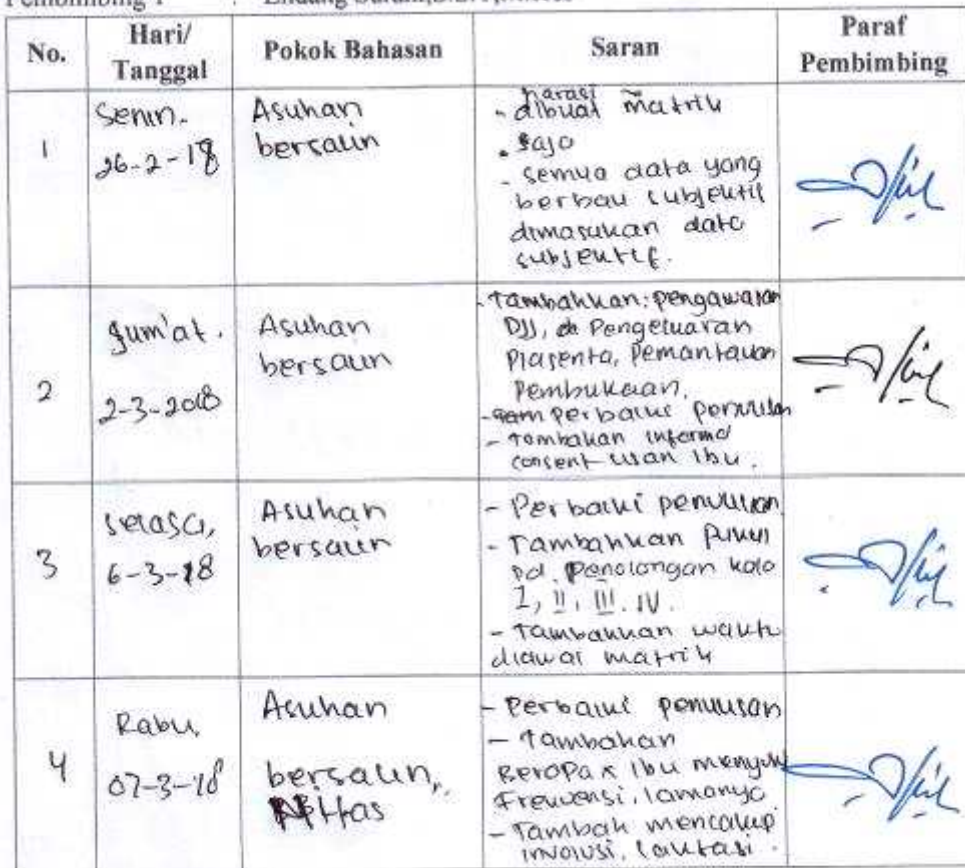 Pembimbing 1 :
No. Hari/ Tanggal Pokok Bahasan Saran Paraf Pembimbing
1
Senin.
26-2-18
Asuhan
bersalin
narasi
- dibuat matrik
- sajo
- semua data yang
berbau subjektif
dimasukan data
subjektif.
2
Jum'at.
2-3-2018
Asuhan
bersalin
- Tambahkan: pengawasan
DJJ, Pengeluaran
Plasenta, Pemantauan
Pembukaan.
- perbaiki penulisan
- Tambahkan informd
consent lisan ibu.
3
Selasa,
6-3-18
Asuhan
bersalin
- Perbaiki penulisan
- Tambahkan Pukul
pd. Penolongan kala
I, II, III. IV.
- Tambahkan waktu
diawal matrik
4
Rabu,
07-3-18
Asuhan
bersalin,
Nifas
- Perbaiki penulisan
- Tambahan
Beropa x ibu menyusui
Frekuensi, lamanya
- Tambah mencakup
involusi, laktasi.